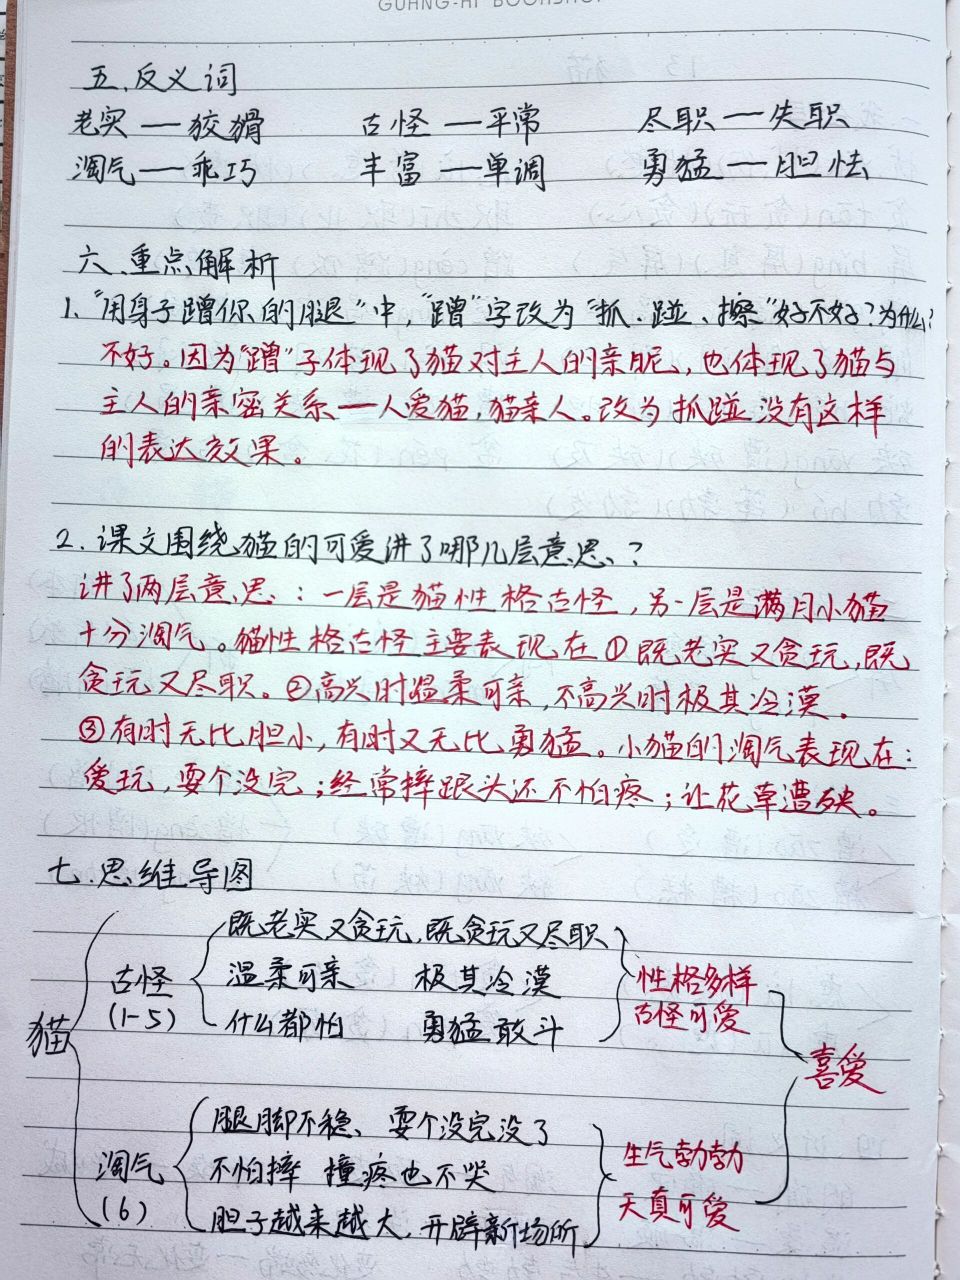 GUANG-HI BOOKSHOP
五.反义词
老实—狡猾 古怪—平常 尽职—失职
淘气—乖巧 丰富—单调 勇猛—胆怯
六.重点解析
1.“用身子蹭你的腿”中,“蹭”字改为“抓、碰、擦”好不好?为什么?
不好。因为“蹭”子体现了猫对主人的亲昵,也体现了猫与
主人的亲密关系—人爱猫,猫亲人。改为抓碰没有这样
的表达效果。
2.课文围绕猫的可爱讲了哪几层意思?
讲了两层意思:一层是猫性格古怪,另一层是满月小猫
十分淘气。猫性格古怪主要表现在①既老实又贪玩,既
贪玩又尽职。②高兴时温柔可亲,不高兴时极其冷漠。
③有时无比胆小,有时又无比勇猛。小猫的淘气表现在:
爱玩,耍个没完;经常摔跟头还不怕疼;让花草遭殃。
七.思维导图
猫
古怪
(1-5)
既老实又贪玩,既贪玩又尽职
温柔可亲 极其冷漠
什么都怕 勇猛敢斗
性格多样
古怪可爱
淘气
(6)
腿脚不稳、耍个没完没了
不怕摔 撞疼也不哭
胆子越来越大,开辟新场所
生气勃勃
天真可爱
喜爱